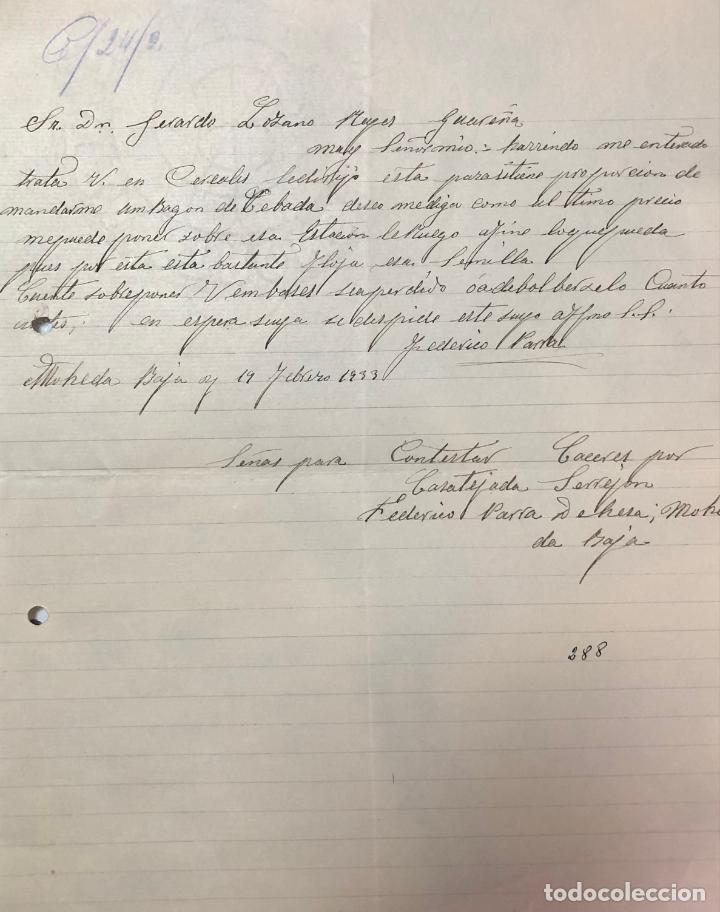 C/24/2.
Sr. Dn. Gerardo Lozano Reyes Guareña
muy Señor mio:= harriendo me enterado
trata V. en Cereales ledirijo esta parasitiene proporcion de
mandarme umBagon de Cebada deseo mediga como ul timo precio
mepuede poner sobre esa Estacion leRuego afine loquepueda
pues por esta esta bastante floja esa Semilla
Cuente sobreponer Vembases senperdido óadebolberselo Cuanto
en espera suya se despide este suyo affmo S.S.
Federico Parra
Moheda Baja oy 19 febrero 1933
Señas para Contestar Caceres por
Casatejada Serrejon
Federico Parra Dehesa; Mohe
da Baja
288
todocoleccion.net